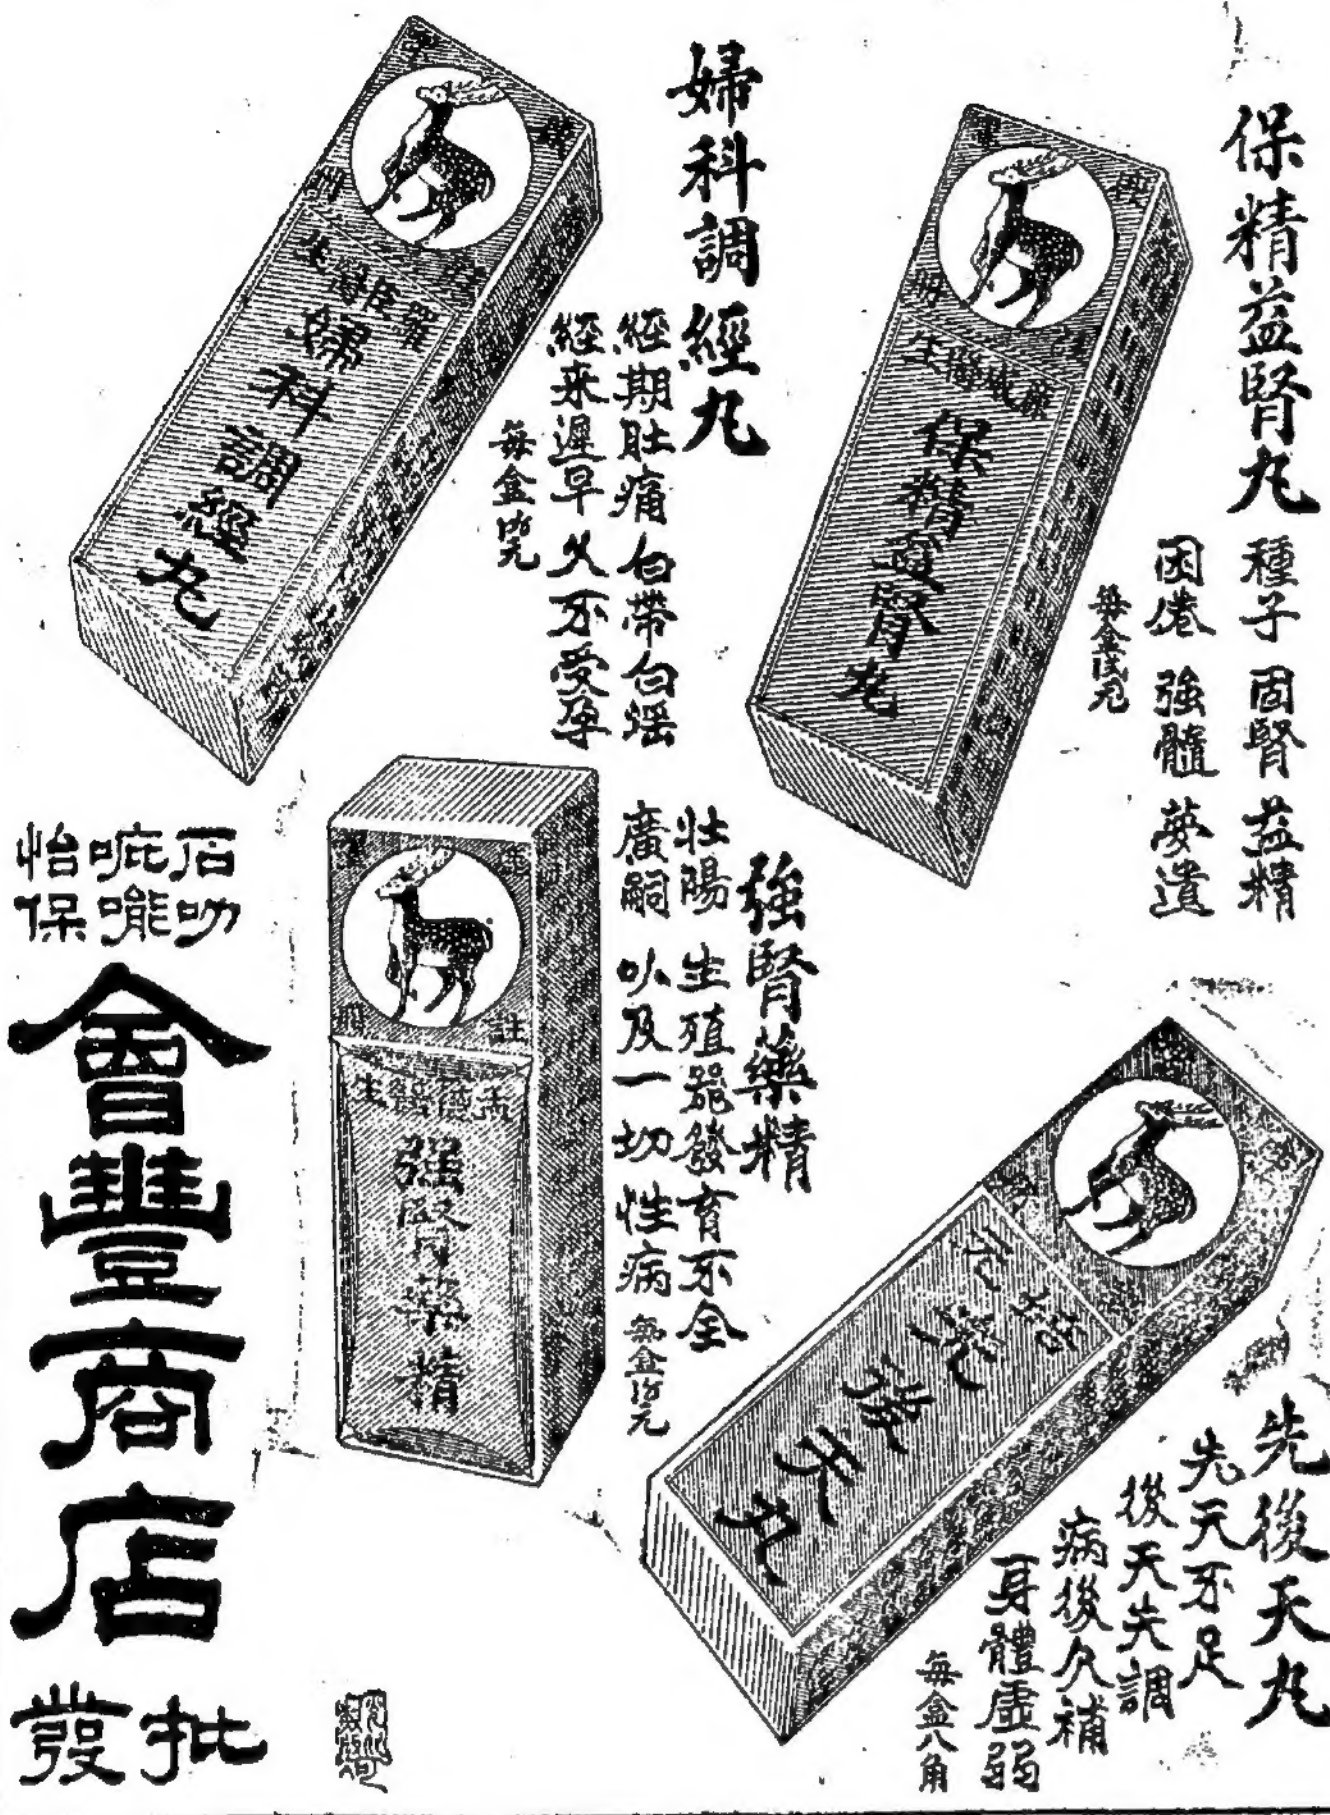 保精益腎丸
種子 固腎 益精
困倦 強髓 夢遺
每盒弍元
保精益腎丸
婦科調經丸
經期肚痛 白帶白淫
經来遲早 久不受孕
每盒
婦科調經丸
強腎藥精
壯陽 生殖器發育不全
廣嗣 以及一切性病
每盒
醫生
強腎藥精
先後天丸
先天不足
後天失調
病後久補
身體虛弱
每盒八角
先後天丸
石叻
吡嚨
怡保
會豐商店
批發